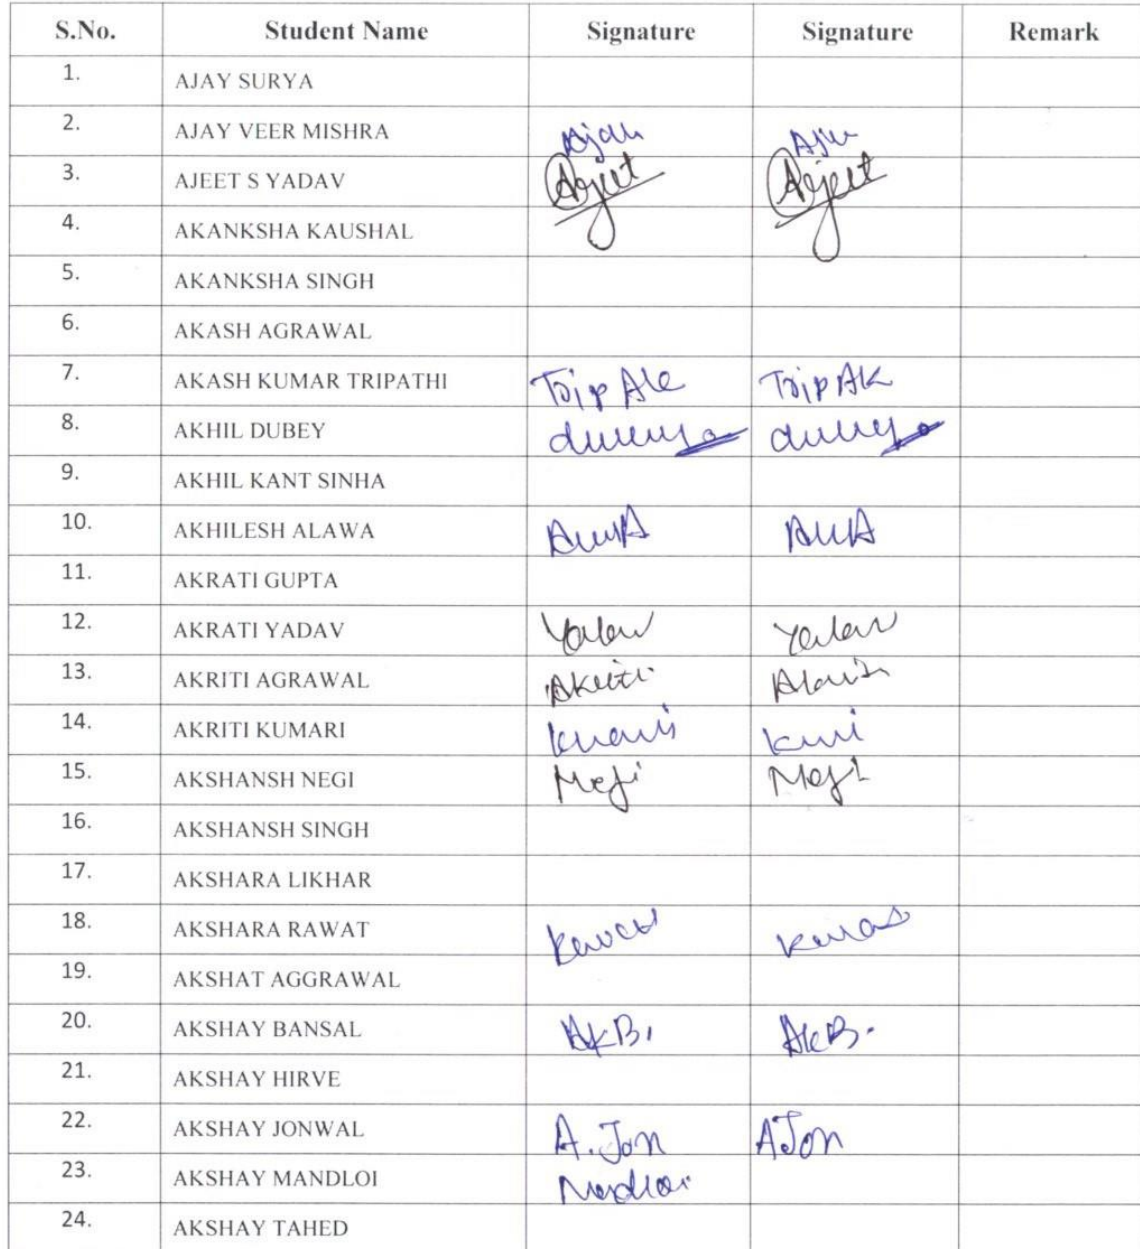 S.No. Student Name Signature Signature Remark
1. AJAY SURYA
2. AJAY VEER MISHRA
3. AJEET S YADAV Arjeet Arjeet
4. AKANKSHA KAUSHAL
5. AKANKSHA SINGH
6. AKASH AGRAWAL
7. AKASH KUMAR TRIPATHI TripAk TripAk
8. AKHIL DUBEY
9. AKHIL KANT SINHA
10. AKHILESH ALAWA
11. AKRATI GUPTA
12. AKRATI YADAV
13. AKRITI AGRAWAL
14. AKRITI KUMARI
15. AKSHANSH NEGI Negi Negi
16. AKSHANSH SINGH
17. AKSHARA LIKHAR
18. AKSHARA RAWAT
19. AKSHAT AGGRAWAL
20. AKSHAY BANSAL AkB. AkB.
21. AKSHAY HIRVE
22. AKSHAY JONWAL A. Jon AJon
23. AKSHAY MANDLOI Mandloi
24. AKSHAY TAHED